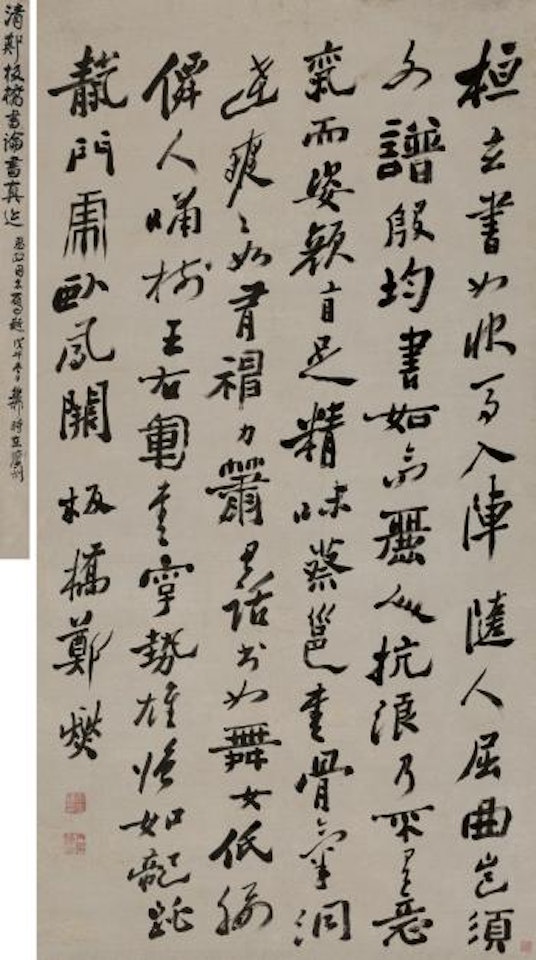 桓玄書如快馬入陣隨人屈曲豈須
文譜殷均書如高麗人抗浪乃不具意
氣而姿顏自足精味蔡邕書骨氣洞
達爽爽如有神力蕭思話書如舞女低腰
僊人嘯樹王右軍書字勢雄強如龍跳
靝門虎臥鳳闕 板橋鄭燮
清鄭板橋書論書真迹
時在廣州